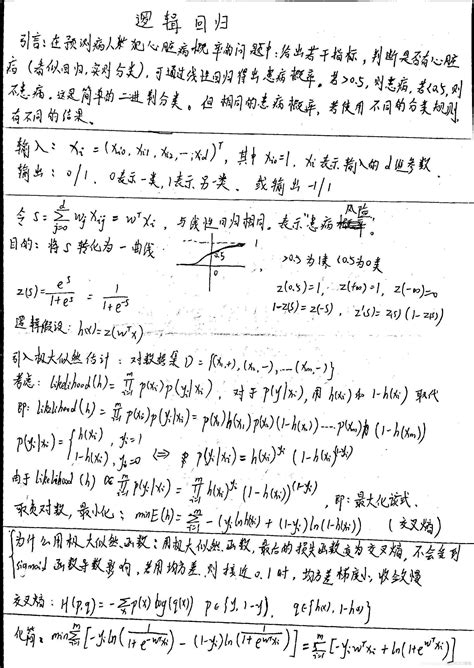 逻辑回归
引言：在预测病人犯心脏病概率的问题中：给出若干指标，判断是否有心脏
病（看似回归，实则分类），可通过线性回归得出患病概率。若>0.5，则患病，若<0.5，则
不患病。这是简单的二进制分类。但相同的患病概率，若使用不同的分类规则，
有不同的结果。
输入： xᵢ = (xᵢ₀, xᵢ₁, xᵢ₂, …, xᵢd)ᵀ，其中 xᵢ₀=1，xᵢ表示输入的d维参数.
输出： 0/1. 0表示一类，1表示另一类. 或输出 -1/1
令 S = Σ_{j=0}^{d} wⱼxᵢⱼ = wᵀxᵢ，与线性回归相同。表示"患病风险"。
目的：将S转化为一曲线 1 0.5 0 >0.5为1类 <0.5为0类
z(s) = e^s/(1+e^s) = 1/(1+e^{-s}) z(0.5)=1, z(+∞)=1, z(-∞)=0
1-z(s)=z(-s), z'(s)=z(s)(1-z(s))
逻辑假设： h(x)=z(wᵀx)
引入极大似然估计：对数据集 D={(x₁,+),(x₂,-),…(xₘ,-)}
考虑： likelihood(h) = Π_{i=1}^{m} p(xᵢ)p(yᵢ|xᵢ)，对于p(y|xᵢ)，用h(xᵢ)和1-h(xᵢ)取代
即： likelihood(h) = Π_{i=1}^{m} p(xᵢ)p(yᵢ|xᵢ) = p(x₁)h(x₁)p(x₂)(1-h(x₂))……p(xₘ)(1-h(xₘ))
p(yᵢ|xᵢ) = { h(xᵢ), yᵢ=1
1-h(xᵢ), yᵢ=0 <=> p(yᵢ|xᵢ)=h(xᵢ)^{yᵢ}(1-h(xᵢ))^{(1-yᵢ)}
由于 likelihood(h) ∝ Π_{i=1}^{m} p(yᵢ|xᵢ) = Π_{i=1}^{m} h(xᵢ)^{yᵢ}(1-h(xᵢ))^{(1-yᵢ)}，即：最大化该式.
取负对数，最小化： min E(h) = Σ_{i=1}^{m} -(yᵢ ln h(xᵢ) + (1-yᵢ) ln(1-h(xᵢ))) （交叉熵）
为什么用极大似然函数：用极大似然函数，最后的损失函数变为交叉熵，不会受到
sigmoid函数导数影响，若用均方差，则接近0.1时，均方差梯度小，收敛慢
交叉熵： H(p,q) = -Σᵢ p(x) log(q(x)) p∈{y,1-y}, q∈{h(x),1-h(x)}
化简： min Σ_{i=1}^{m} [-yᵢ ln(1/(1+e^{-wᵀxᵢ})) - (1-yᵢ) ln(1/(1+e^{wᵀxᵢ}))] = Σ_{i=1}^{m} [-yᵢwᵀxᵢ + ln(1+e^{wᵀxᵢ})]